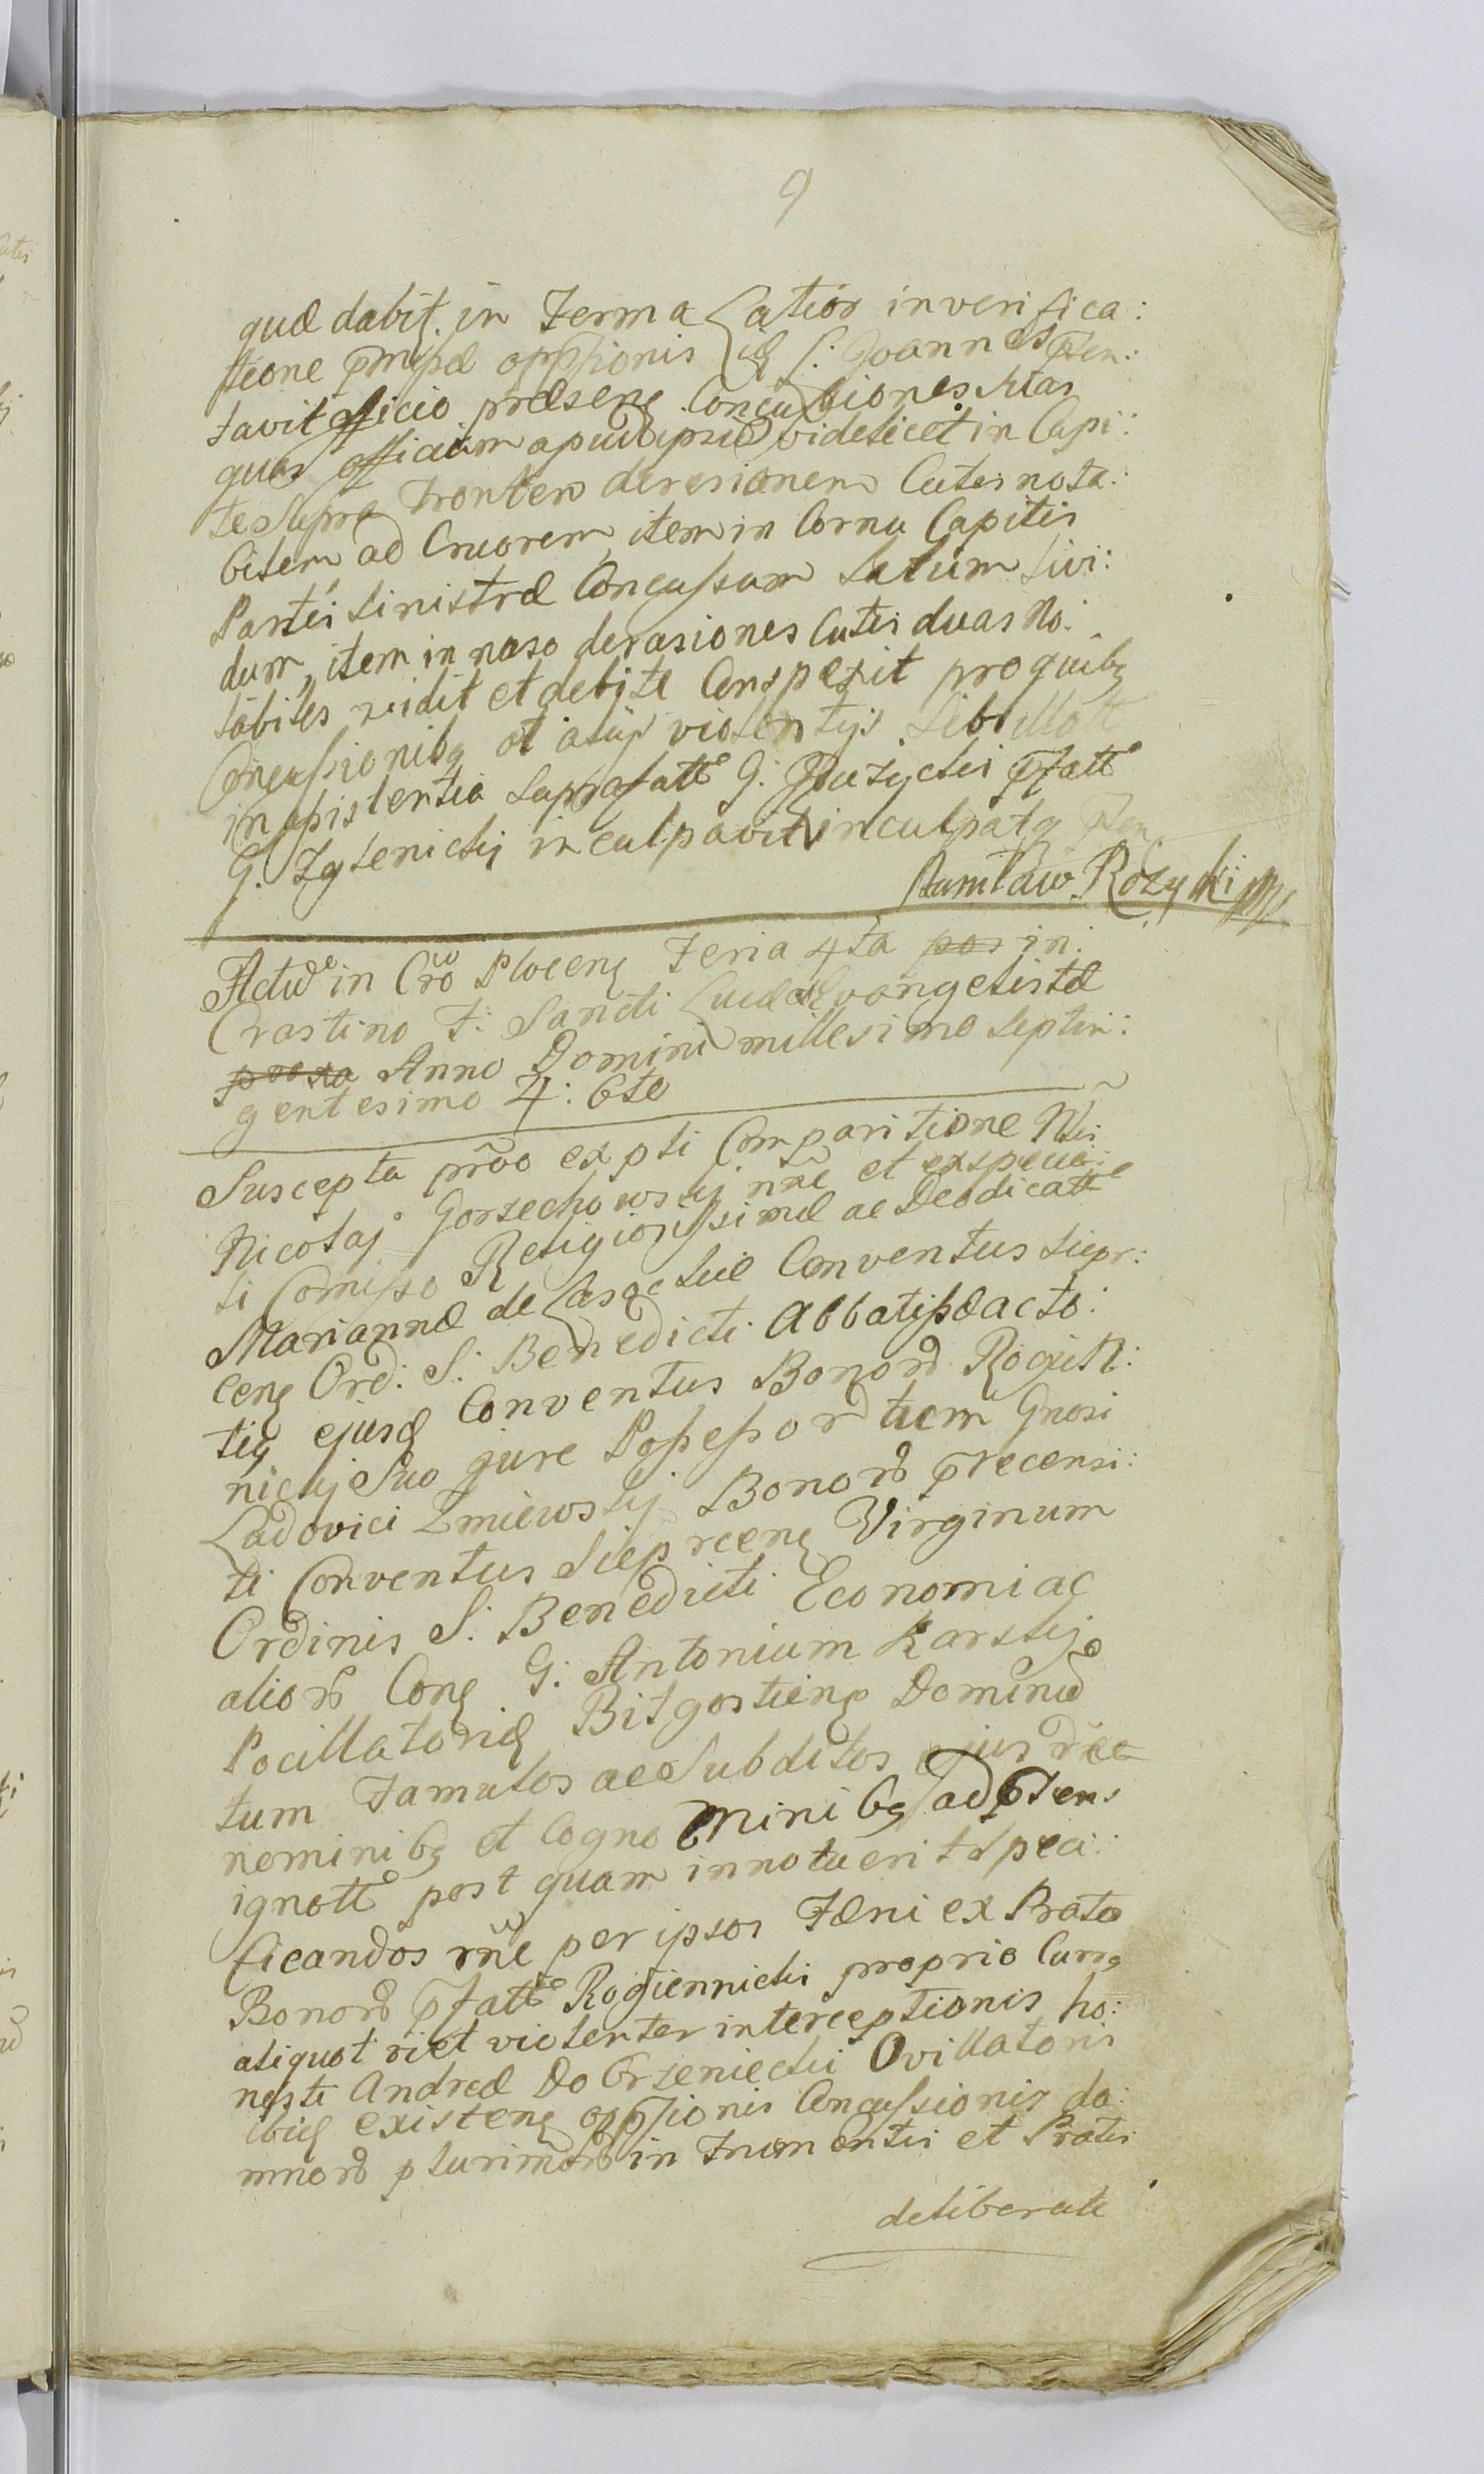 9
quæ dabit. in Term a Latior in verifica:
tione pmissæ oppssionis id S. Joannes pñen:
tavit officio præsenę Concussiones Suas
quas officium apud ipsū videlicet in Capi:
te Supra Frontem derasionem Cutis nota:
bilem ad Cruorem, item in Cornu Capitis
Partis Sinistræ Concussum Satum Livi:
dum, item in naso derasiones Cutis duas No:
tabiles vidit et debite Conspexit pro quibq
Concussionibq et alijs violentijs Sibi illatt
in assistentia Suprafatte G. Różycki pfatt
G. Zglenickij inculpavit inculpatq
Stanisław Różycki mp
Actū in Cro Plocenę Feria 4ta pos in
Crastino F: Sancti Lucæ Evangelistæ
proxa Anno Domini millesimo Septin:
gentesimo 4: 6to
Suscepta prõo expti Comparitione Nlis
Nicolaj Gorzechowskij nñe et exspecia:
li Comisso Religiosissimæ ac Deodicatte
Mariannæ de Lasockie Conventus Siepr:
cenę Ord: S: Benedicti Abbatissæ acto:
tiq ejusd Conventus Bonorū Rogień:
nickij Suo jure Possessor tum Gnosi
Ludovici Zmiewskij Bonorū precensi:
ti Conventus Sieprcenę Virginum
Ordinis S: Benedicti Economi ac
aliorū Conę G: Antonium Karskij
Pocillatoridę Bilgostienę Dominū
tum Famulos ac Subditos ejus rñe
nominibq et Cogno minibq ad pñens
ignottē post quam innotuerit Speci:
ficandos rñe per ipsos Fæni ex Prato
Bonorū pfattē Rogiennicki proprio Curro
aliquot riēt violenter interceptionis ho:
nesti Andreæ Dobrzeniecki Ovillatoris
ibid existenę oppssionis Concussionis da:
mnorū plurimorū in Frumentis et Pratis
deliberate